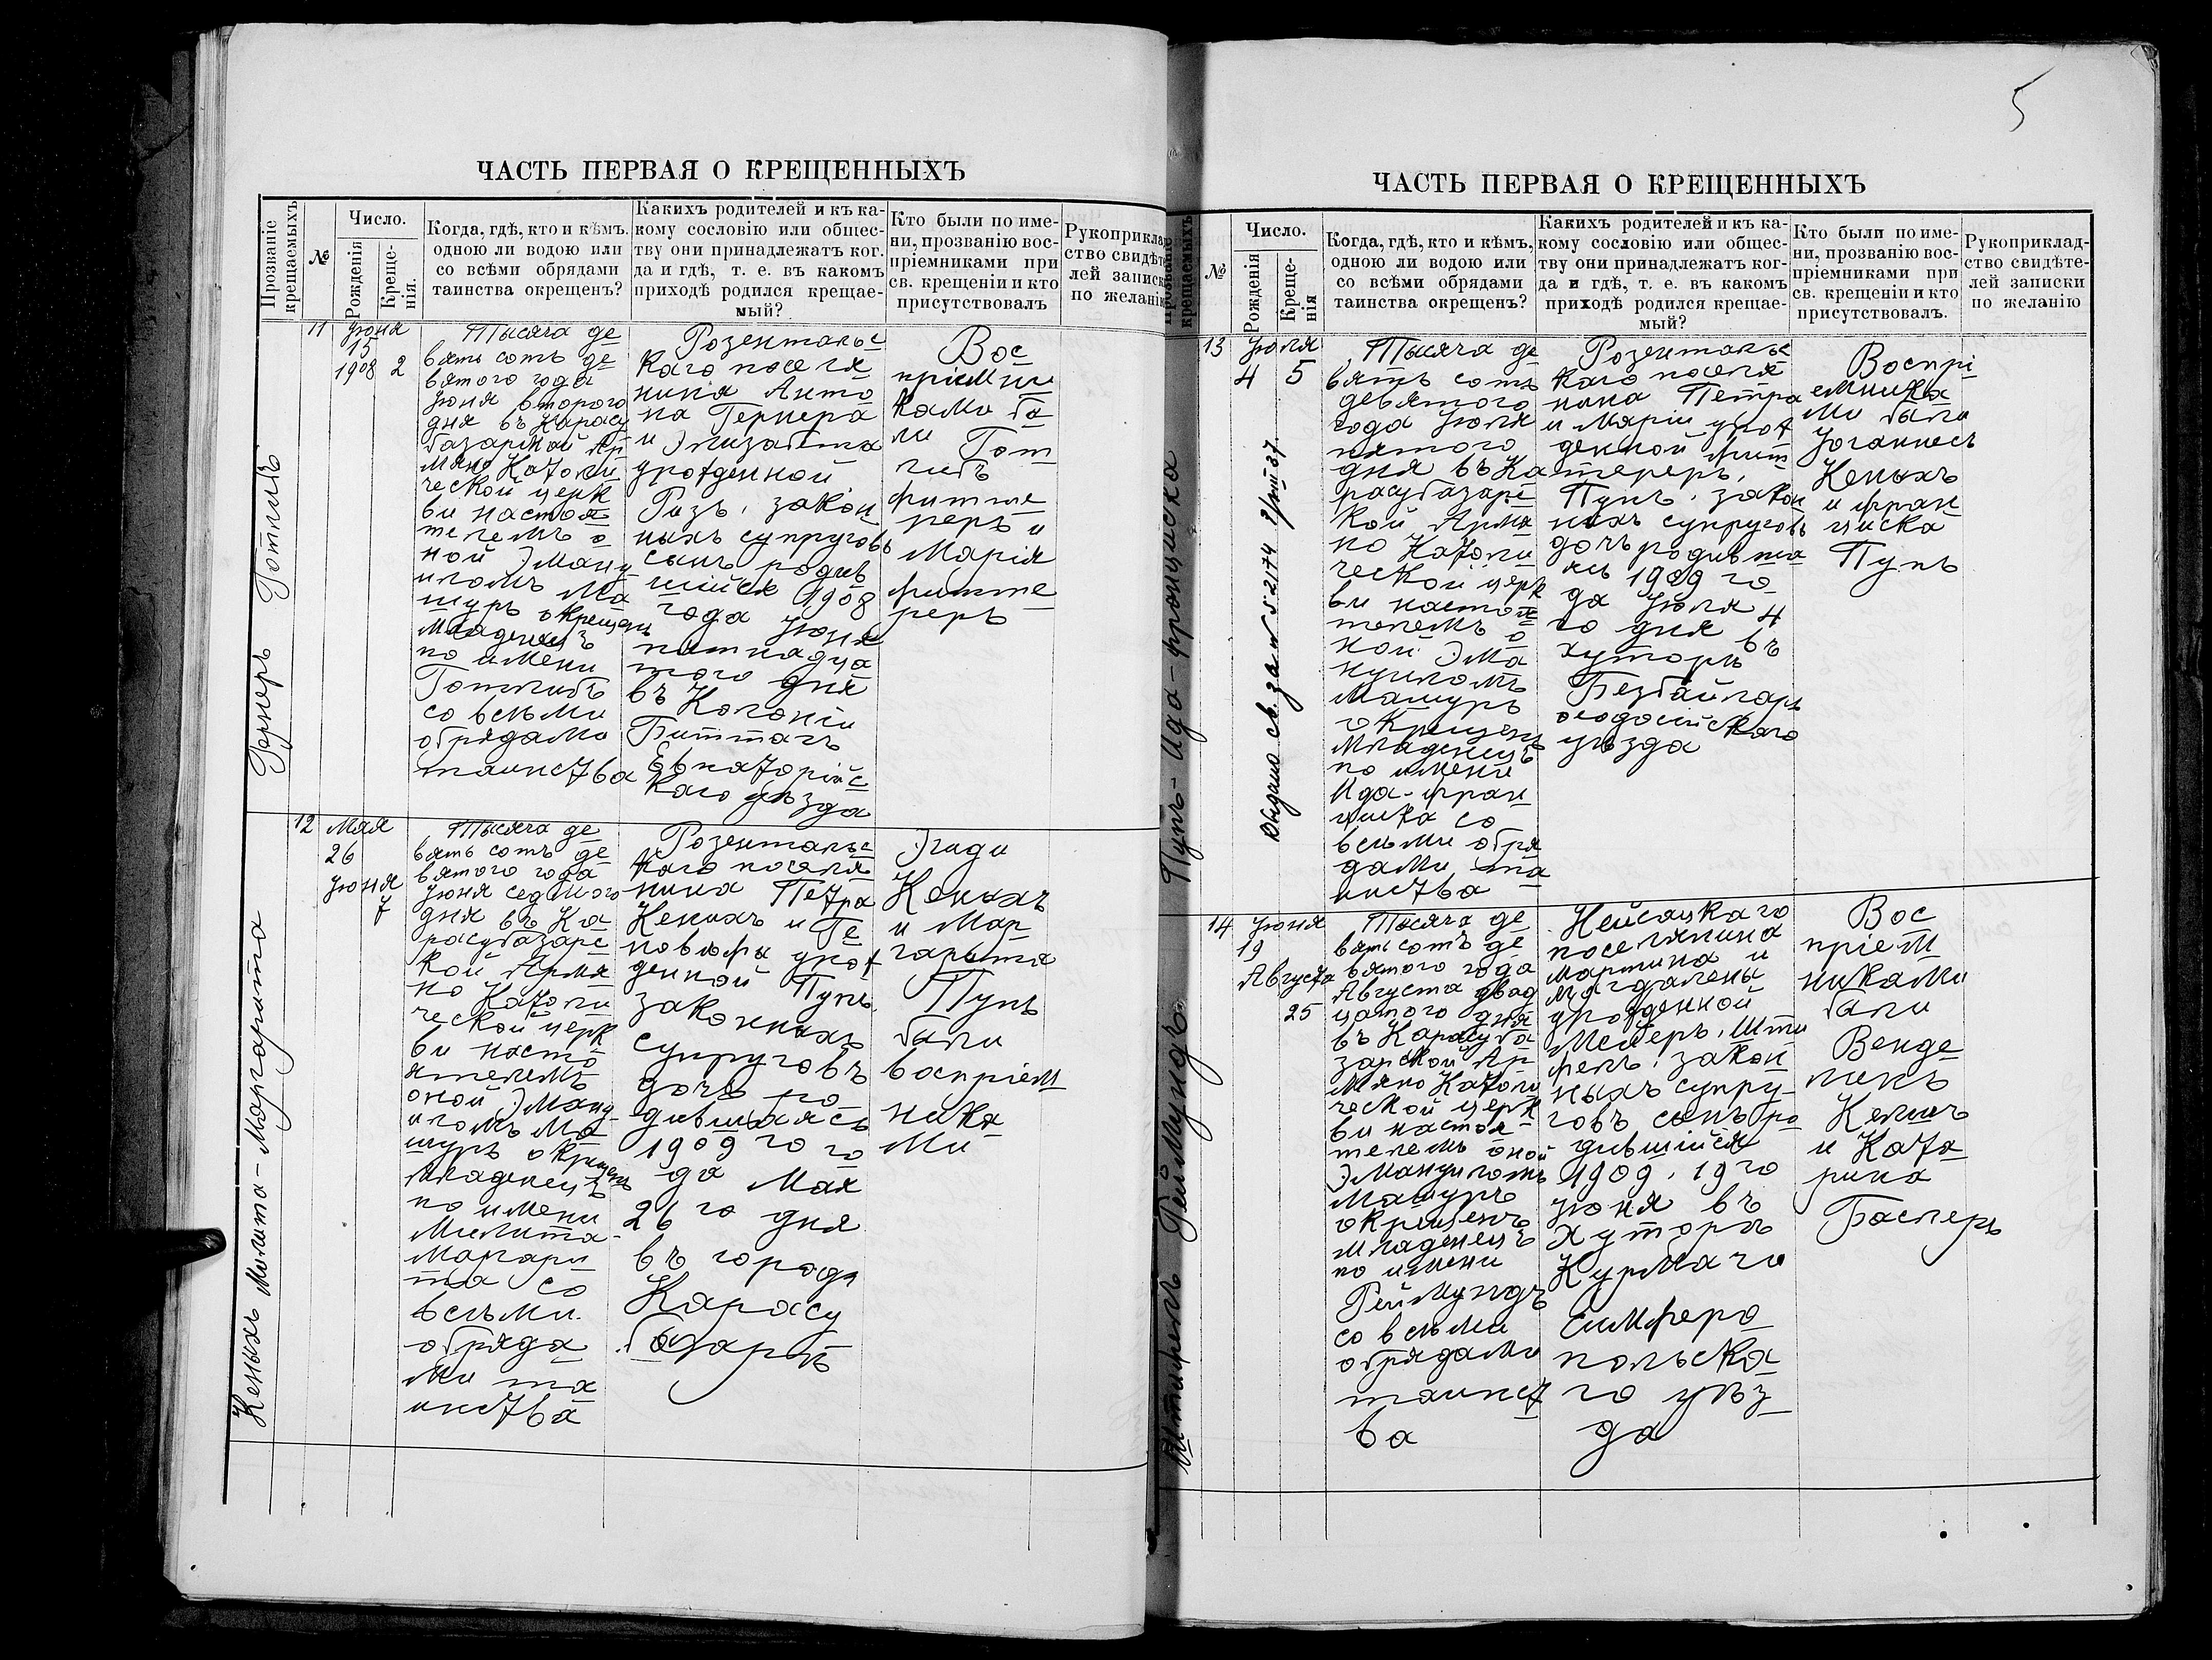 5
ЧАСТЬ ПЕРВАЯ О КРЕЩЕННЫХЪ
Прозваніе крещаемыхъ
№
Число.
Рожденія
Креще-
нія.
Когда, гдѣ, кто и кѣмъ,
одною ли водою или
со всѣми обрядами
таинства окрещенъ?
Какихъ родителей и къ ка-
кому сословію или общес-
тву они принадлежатъ ког.
да и гдѣ, т. е. въ какомъ
приходѣ родился крещае-
мый?
Кто были по име-
ни, прозванію вос-
пріемниками при
св. крещеніи и кто
присутствовалъ
Рукоприклад
ство свидѣте
лей записки
по желанію
Гернеръ Готлибъ
11
Іюня
15
1908 2
Тысяча де
вять сотъ де
вятого года
Іюня второго
дня въ Карасу
базарской Ар
мяно Католи
ческой церк
ви настоя
телемъ о
ной Эману
иломъ Ма
шуръ окрещенъ
младенецъ
по имени
Готлибъ
со всѣми
обрядами
таинства
Розентальс
каго поселя
нина Анто
на Гернера
и Элизабета
урожденной
Ризъ, закон
ныхъ супруговъ
сынъ родив
шійся 1908
года Іюня
пятнадца
того дня
въ Колоніи
Биттакъ
Евпаторійс
каго уѣзда
Вос
пріемни
ками бы
ли Гот
либъ
Фиттле
реръ и
Марія
Фиттле
реръ
Кеныхъ Милита-Маргарита
12
Мая
26
Іюня
7
Тысяча де
вять сотъ де
вятого года
Іюня седмого
дня въ Ка
расубазарс
кой Армя
но Католи
ческой церк
ви насто
ятелемъ
оной Эману
иломъ Ма
шуръ окрещенъ
младенецъ
по имени
Милита-
Маргари
та со
всѣми
обряда
ми та
инства
Розентальс
каго поселя
нина Петра
Кеныхъ и Ге
новефы урож
денной Пупъ.
законныхъ
супруговъ
дочь ро
дившаяся
1909 го го
да Мая
26 го дня
въ городѣ
Карасу
базарѣ
Эгиди
Кеныхъ
и Мар
гарита
Пупъ
были
воспріем
ника
ми
ЧАСТЬ ПЕРВАЯ О КРЕЩЕННЫХЪ
Прозваніе крещаемыхъ
№
Число.
Рожденія
Креще-
нія
Когда, гдѣ, кто и кѣмъ,
одною ли водою или
со всѣми обрядами
таинства окрещенъ?
Какихъ родителей и къ ка-
кому сословію или общес-
тву они принадлежатъ ког-
да и гдѣ, т. е. въ какомъ
приходѣ родился крещае-
мый?
Кто были по име-
ни, прозванію вос-
пріемниками при
св. крещеніи и кто
присутствовалъ.
Рукоприклад-
ство свидѣте-
лей записки
по желанію
Пупъ-Ида-Франциска
13
Іюля
4 5
Выдано св. за № 5-2174 2/VIII 37
Тысяча де
вять сотъ
девятого
года Іюля
пятого
дня въ Ка
расубазарс
кой Армя
но Католи
ческой церк
ви настоя
телемъ о
ной Эма
нуиломъ
Машуръ
окрещенъ
младенецъ
по имени
Ида-Фран
циска со
всѣми обря
дами та
инства
Розентальс
каго поселя
нина Петра
и Маріи урож
денной Фит
терерь,
Пупъ. закон
ныхъ супруговъ
дочь родивша
яся 1909 го
да Іюля 4
го дня въ
хуторѣ
Безбайларъ
Ѳеодосійскаго
уѣзда
Воспрі
емника
ми были
Іоганнесъ
Кеныхъ
и Фран
циска
Пупъ
Штифель Реймундъ
14
Іюня
19
Августа
25
Тысяча де
вять сотъ де
вятого года
Августа двад
цатого дня
въ Карасуба
зарской Ар
мяно Католи
ческой церк
ви настоя-
телемъ оной
Эмануиломъ
Машуръ
окрещенъ
младенецъ
по имени
Реймундъ
со всѣми
обрядами
таинст
ва
Нейсацкаго
поселянина
Мартина и
Магдалены
урожденной
Мейеръ, Шти
фель. закон
ныхъ супру-
говъ сынъ ро
дившійся
1909. 19 го
Іюня въ
хуторѣ
Курмачи
Симферо
польска
го уѣз
да
Вос
пріем
никами
были
Венде
линъ
Келлеръ
и Ката
рина
Бастеръ